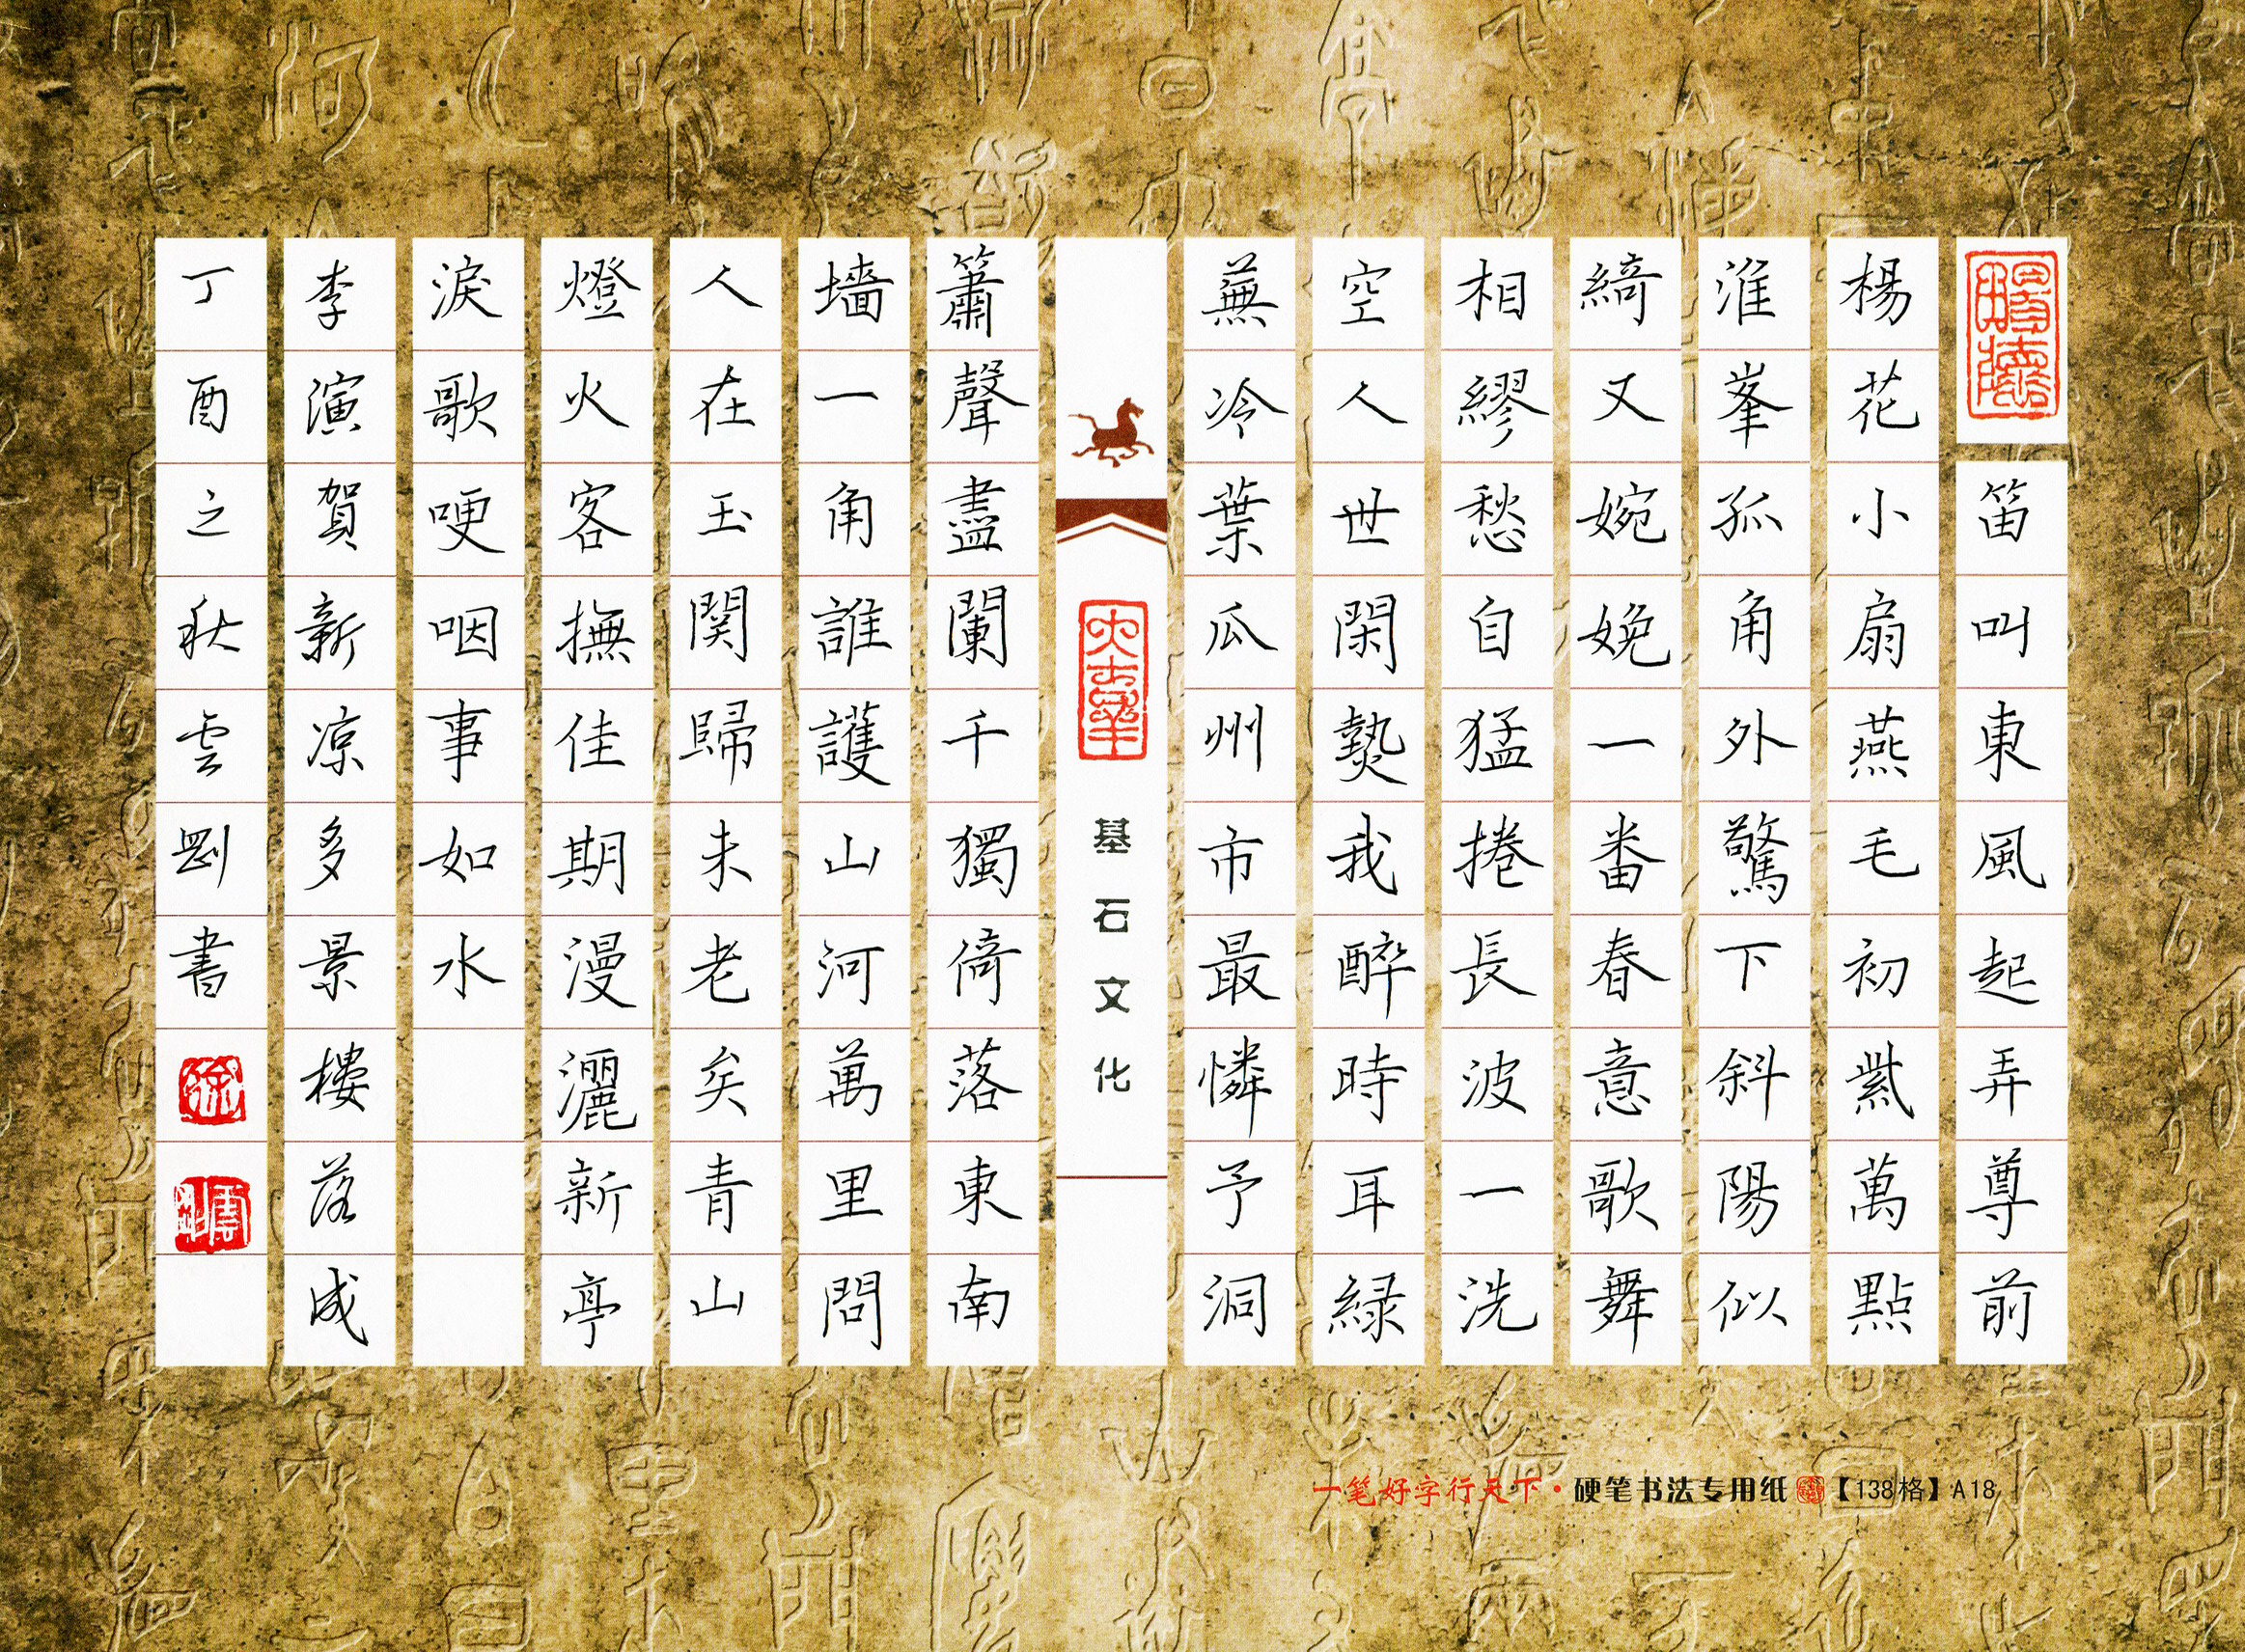 笛叫東風起弄尊前
楊花小扇燕毛初紫萬點
淮峯孤角外驚下斜陽似
綺又婉娩一番春意歌舞
相繆愁自猛捲長波一洗
空人世閑熱我醉時耳綠
蕪冷葉瓜州市最憐予洞
基石文化
簫聲盡闌干獨倚落東南
墻一角誰護山河萬里問
人在玉関歸未老矣青山
燈火客撫佳期漫灑新亭
淚歌哽咽事如水
李演賀新凉多景樓落成
丁酉之秋雲剛書
一笔好字行天下·硬笔书法专用纸【138格】A18